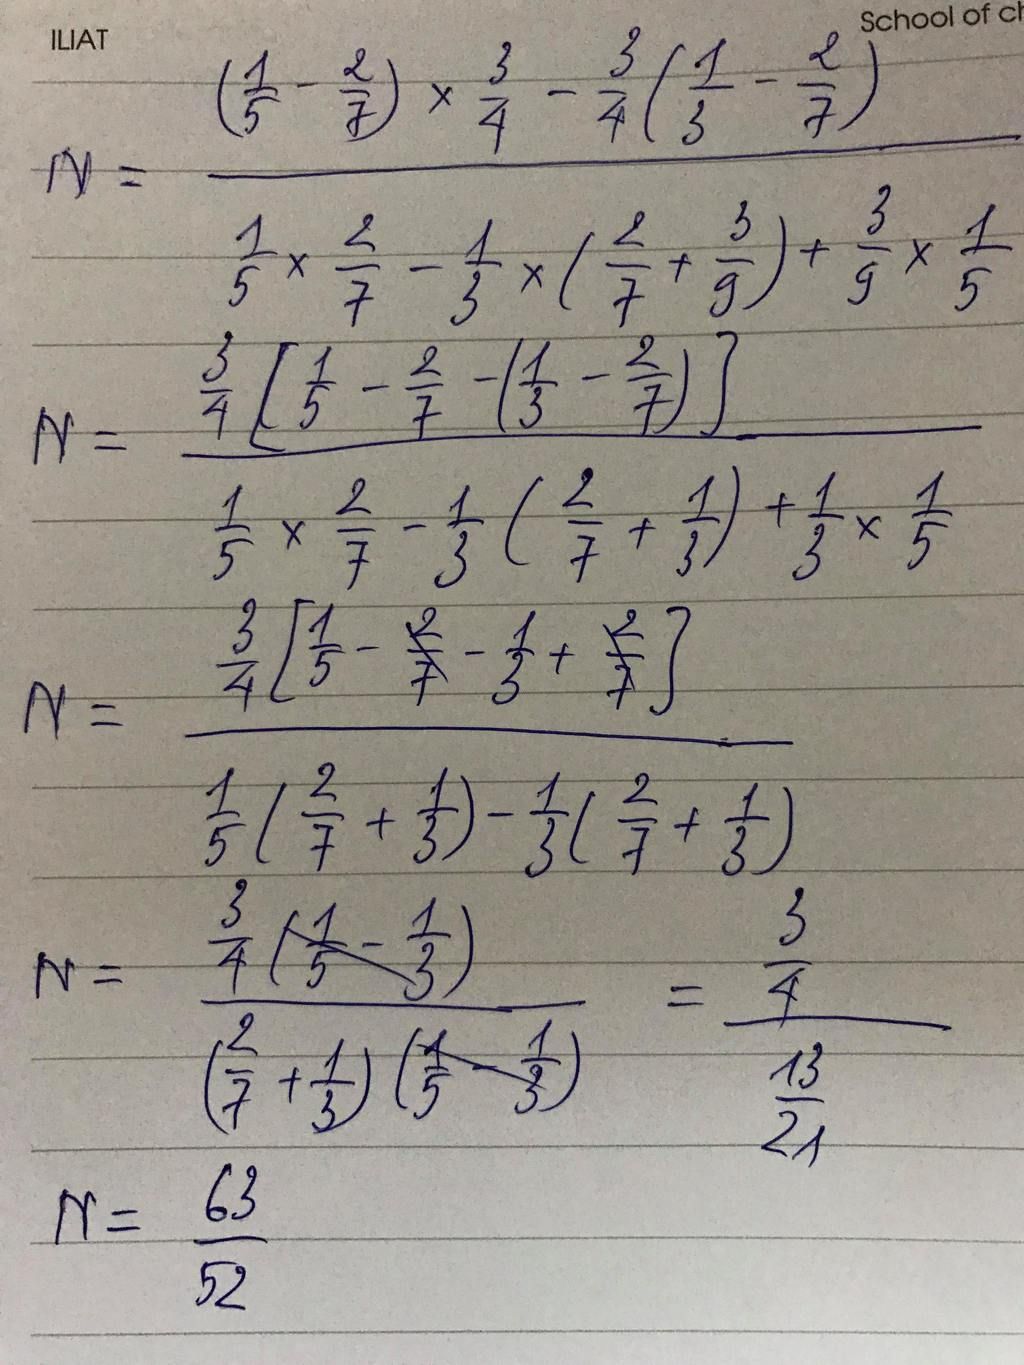 ILIAT School of ch
N = ((1/5 - 2/7) × 3/4 - 3/4 (1/3 - 2/7)) / (1/5 × 2/7 - 1/3 × (2/7 + 3/9) + 3/9 × 1/5)
N = (3/4 [1/5 - 2/7 - (1/3 - 2/7)]) / (1/5 × 2/7 - 1/3 (2/7 + 1/3) + 1/3 × 1/5)
N = (3/4 [1/5 - 2/7 - 1/3 + 2/7]) / (1/5 (2/7 + 1/3) - 1/3 (2/7 + 1/3))
N = (3/4 (1/5 - 1/3)) / ((2/7 + 1/3) (1/5 - 1/3)) = (3/4) / (13/21)
N = 63/52